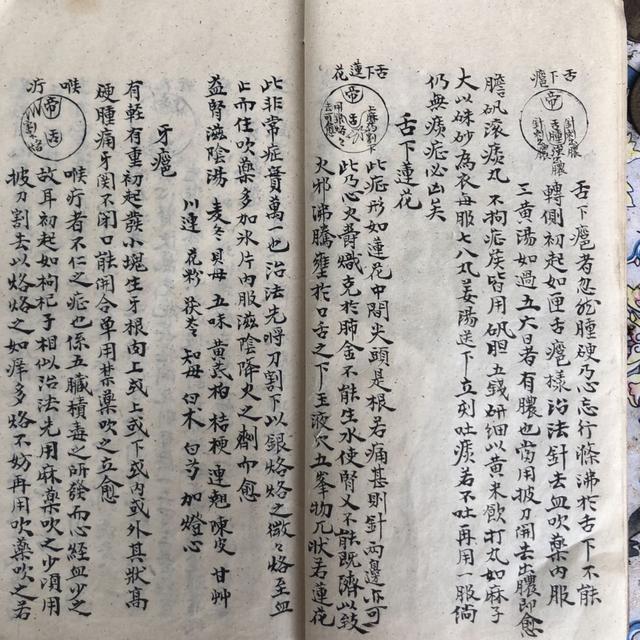 舌下癰
帝舌
舌腫硬脹
針刺之膿
舌下癰者忽然腫硬乃心忘行滌沸於舌下不能
轉側初起如重舌癰樣治法針去血吹藥內服
三黃湯如過五六日者有膿也當用披刀開去出膿即愈
膽矾滚痰丸 不拘症候皆用矾胆五錢研細以黃米飲打丸如麻子
大以硃砂為衣每服七八丸姜湯送下立刻吐痰若不吐再用一服倘
仍無痰症必凶矣
舌下蓮花
舌下蓮花
帝舌
此症形如蓮花中間尖頭是根若痛甚則針兩邊亦可
此乃心火爵熾克於肺金不能生水使腎又不能既濟以致
火邪沸騰壅於口舌之下玉液穴五峯物兀狀若蓮花
此非常症實萬一也治法先將刀割下以銀烙烙之微々烙至血
止而住吹藥多加氷片內服滋陰降火之劑而愈
益腎滋陰湯 麦冬 貝母 五味 黃芪 柏 桔梗 連翹 陳皮 甘艸
川連 花粉 茯苓 知母 白术 白芍 加燈心
牙癰
有輕有重初起發小塊生牙根向上或上或下或內或外其狀高
硬腫痛牙関不閉口能開合单用禁藥吹之立愈
喉疔
帝舌
喉疔者不仁之症也係五臟積毒之所發而心經血少之
故耳初起如枸杞子相似治法先用麻藥吹之少頃用
披刀割去以烙烙之如痒多烙不妨再用吹藥吹之若